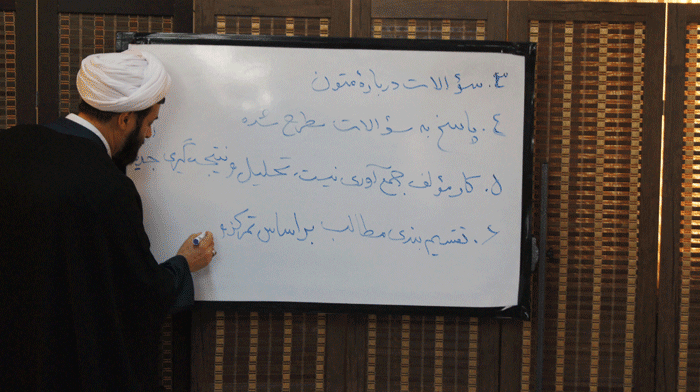 ۳. سؤالات دربارهٔ متون
٤. پاسخ به سؤالات مطرح شده
۵. کار مؤلف جمع آوری نیست، تحلیل و نتیجه گیری
۶. تقسیم بندی مطالب براساس تمرکز و